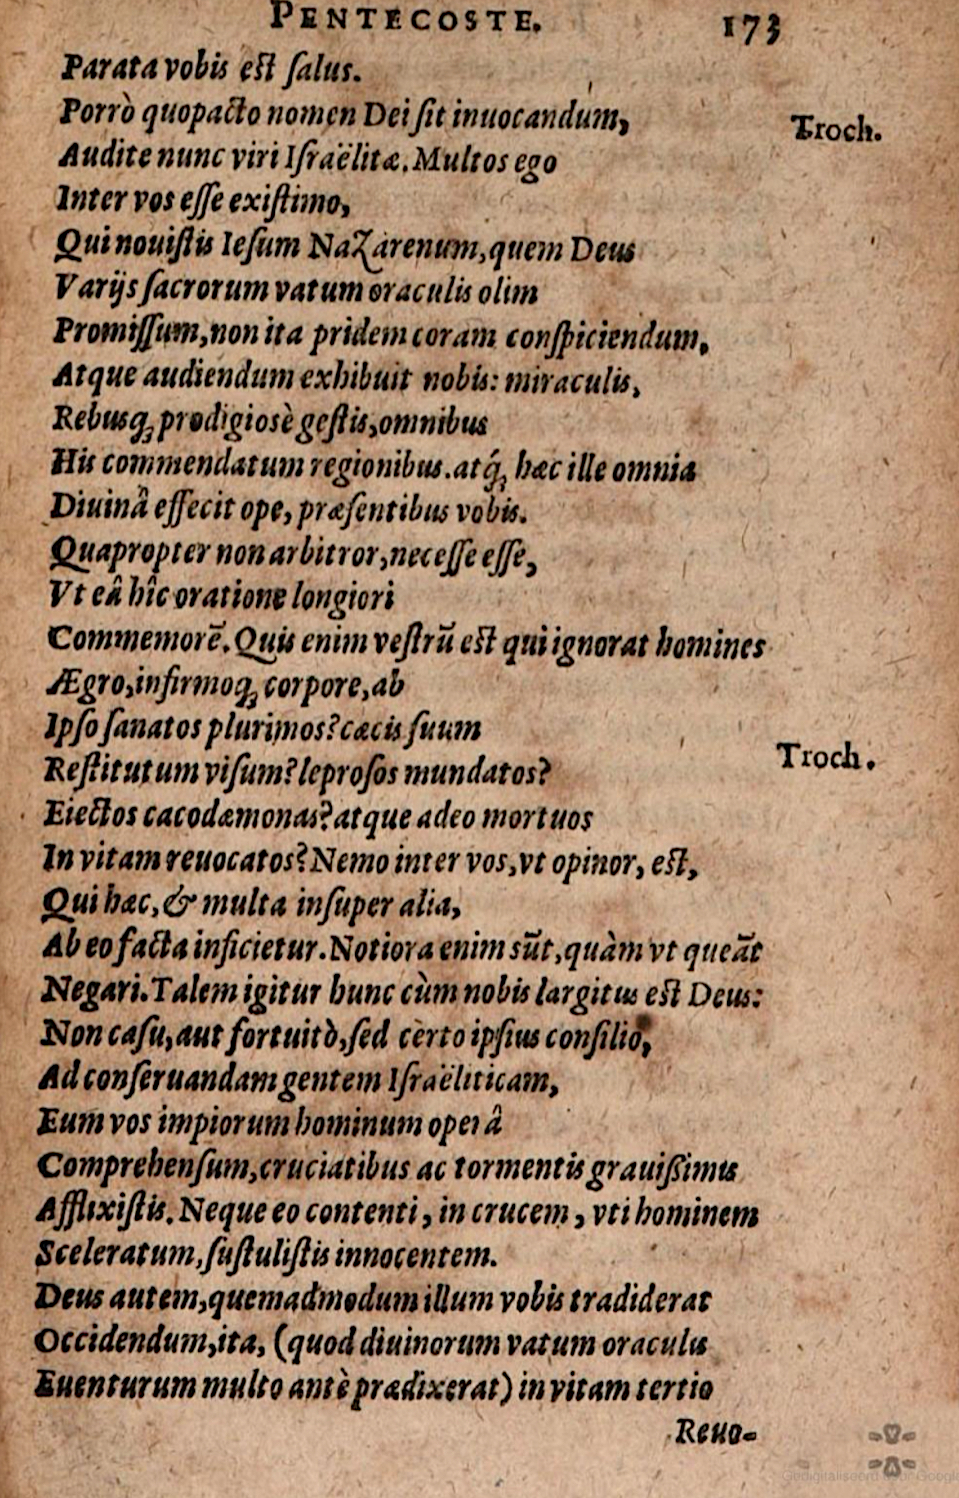 PENTECOSTE. 173
Parata vobis est ſalus.
Porrò quopacto nomen Dei ſit inuocandum,
Troch.
Audite nunc viri Iſraëlitæ. Multos ego
Inter vos eſſe exiſtimo,
Qui nouiſtis Ieſum Nazarenum, quem Deus
Varijs ſacrorum vatum oraculis olim
Promiſſum, non ita pridem coram conſpiciendum,
Atque audiendum exhibuit nobis: miraculis,
Rebusq; prodigiosè geſtis, omnibus
His commendatum regionibus. atq́; hæc ille omnia
Diuinâ effecit ope, præſentibus vobis.
Quapropter non arbitror, neceſſe eſſe,
Vt eâ hîc oratione longiori
Commemorē. Quis enim veſtrū est qui ignorat homines
Ægro, infirmoq; corpore, ab
Ipſo ſanatos plurimos? cæcis ſuum
Reſtitutum viſum? leproſos mundatos?
Troch.
Eiectos cacodæmonas? atque adeo mortuos
In vitam reuocatos? Nemo inter vos, vt opinor, est,
Qui hæc, & multa inſuper alia,
Ab eo facta inficietur. Notiora enim sūt, quàm vt queāt
Negari. Talem igitur hunc cùm nobis largitus est Deus:
Non caſu, aut fortuitò, ſed certo ipſius conſilio,
Ad conſeruandam gentem Iſraëliticam,
Eum vos impiorum hominum operâ
Comprehenſum, cruciatibus ac tormentis grauiſſimis
Afflixiſtis. Neque eo contenti, in crucem, vti hominem
Sceleratum, ſuſtuliſtis innocentem.
Deus autem, quemadmodum illum vobis tradiderat
Occidendum, ita, (quod diuinorum vatum oraculis
Euenturum multo antè prædixerat) in vitam tertio
Reuo-